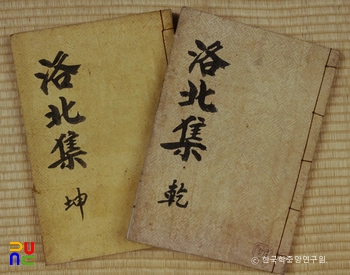 洛北集
坤
洛北集
乾
UNC
© 한국학중앙연구원